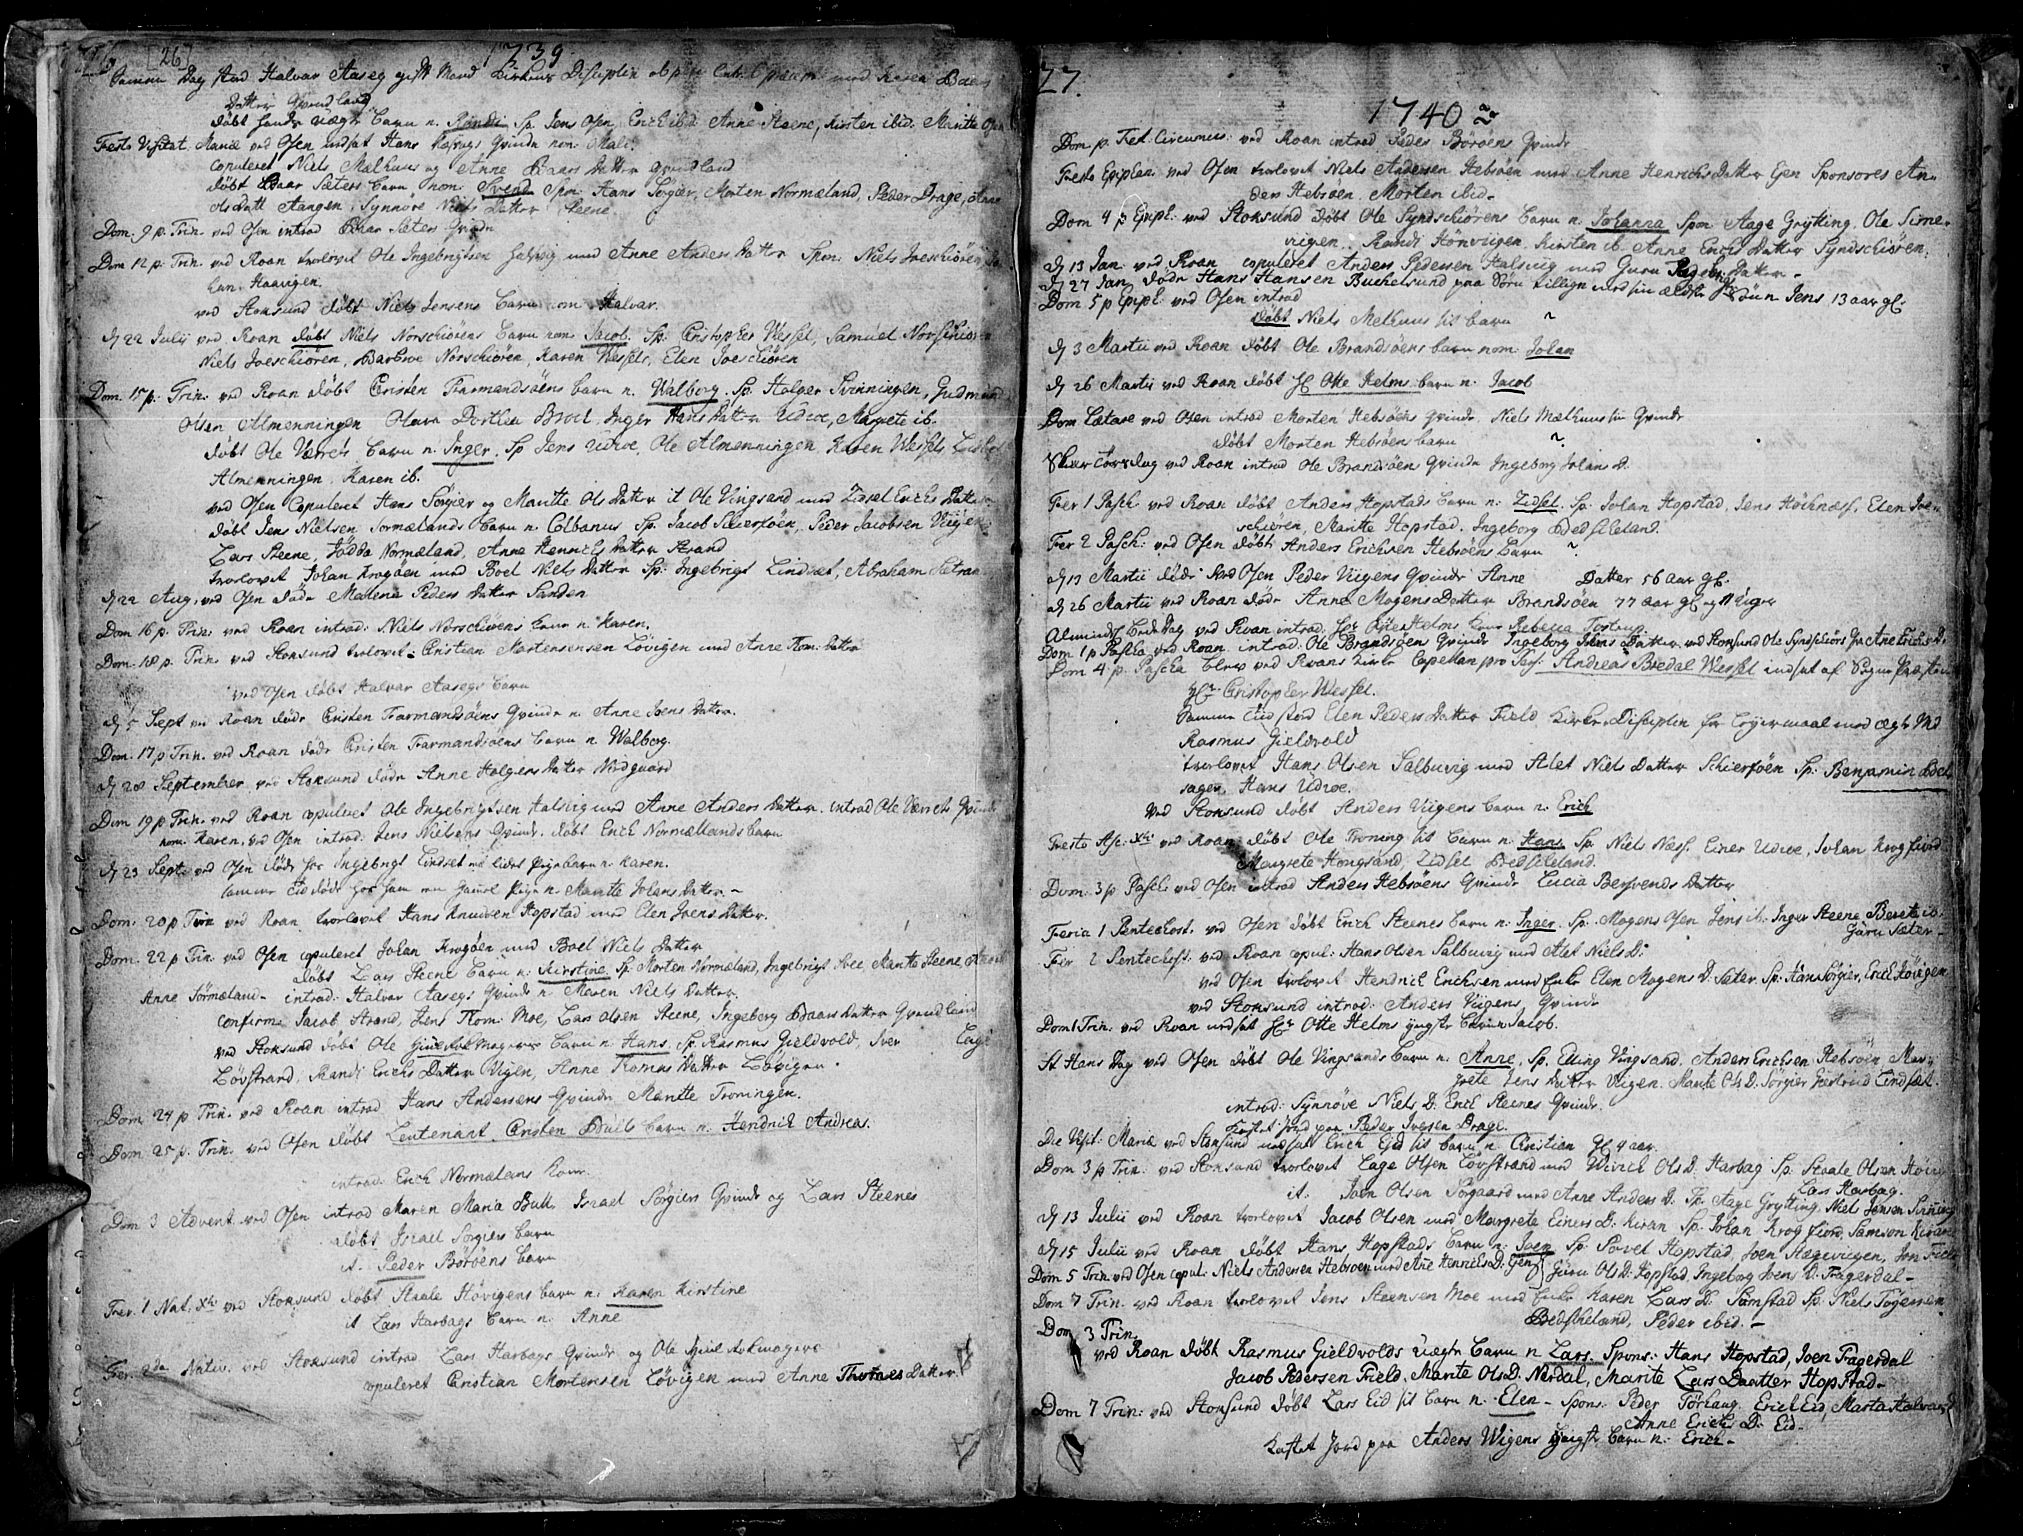 26 [26] 1739.
Samme Dag stod Halvar Aaseg gift Mand Kirkens Disciplin med Karen Baars
Datter Qvindland
døbt hendes uægte barn n. Randi Sp. Jens Osen, Erich ibid. Anne Steene, Kirsten ibid. Maritte Osen
Festo Visitat. Mariæ ved Osen indsat Hans Qvinde nom. Mali.
copuleret Niels Mælhuus og Anne Baars Datter Qvindland
døbt Baar Sæters barn nom. Svend Spon. Hans Sørgier, Morten Normæland, Peder Drage, Anne
Ols Datt. Aangen, Synnøve Niels Datter Steene
Dom. 9 p. Trin. ved Osen introd. Baar Sæters Qvinde
Dom 12 p. Trin. ved Roan trolovet Ole Ingebrigtsen Halsvig med Anne Anders Datter Spon. Niels Joeschiøren
han Haaugen.
ved Stoksund døbt Niels Jensens barn nom. Halvar.
d 22 Julii ved Roan døbt Niels Norschiørens barn nom. Jacob. Sp. Cristopher Wessel, Samuel Norschiøren
Niels Joeschiøren, Barbroe Norschiøren, Karen Wessels, Elen Joeschiøren
Dom. 15 p. Trin. ved Roan døbt Cristen Farmandsøens barn n. Walborg. Sp. Holger Svinningen, Gudmund
Olsen Almenningen Oluva Dorthea Broch Inger Hans Datter Udroe, Margrete ib.
døbt Ole Værrets barn n. Inger. Sp Jens Udroe, Ole Almenningen, Karen Wessels
Almenningen, Karen ib.
ved Osen Copuleret Hans Sørgier og Maritte Ols Datter it Ole Vingsand med Zidsel Erichs Datter
døbt Jens Nielsen Sormælands barn n. Colbanus Sp. Jacob Schiersøen, Peder Jacobsen Viigen
Lars Steene, Jødda Normæland, Anne Henrichs Datter Strand
trolovet Johan Krogøen med Boel Niels Datter Sp: Ingebrigt Lindsæt, Abraham Sætran
d 22 Aug. ved Osen døde Mallene Peders Datter Sanden
Dom 16 p. Trin. ved Roan introd. Niels Norschiørens kone n. Karen.
Dom. 18 p. Trin. ved Stoksund trolovet Cristian Mortensensen Løvigen med Anne Tom: Datter
ved Osen døbt Halvar Aasegs barn
d 5 Sept. ved Roan døde Cristen Farmandsøens Qvinde n. Anne Joens Datter.
Dom. 17 p Trin. ved Roan døde Cristen Farmandsøens barn n. Walborg.
d 20 September ved Stoksund døde Anne Holgers Datter Nedgaard
Dom 19 p Trin. ved Roan copuleret Ole Ingebrigtsen Halsvig med Anne Anders Datter, introd. Ole Værrets Qvinde
nom. Karen, ved Osen introd. Jens Nielsens Qvinde. døbt Erich Normælands barn
d 23 Sept. ved Osen døde hos Ingebrigt Lindset et lidet Pigebarn n. Karen.
samme tid døde hos ham en gammel Pige n. Maritte Johans Datter
Dom: 20 p Trin. ved Roan trolovet Hans Knudsen Hopstad med Elen Joens Datter.
Dom. 22 p Trin. ved Osen copuleret Johan Krogøen med Boel Niels Datter
døbt Lars Steene barn n: Kirstine. Sp. Morten Normæland, Ingebrigt Hvee, Maritte Steene,
Anne Sørmæland. introd. Halvar Aasegs Qvinde n. Maren Niels Datter.
confirm. Jacob Strand, Jens Tom: Moe, Lars Olsen Steene, Ingeborg Baars Datter Qvindland
ved Stoksund døbt Ole barn n. Hans. Sp. Rasmus Gieldvold, Iver Lage
Løvstrand, Randi Erichs Datter Viigen, Anne Tomas Datter Løvigen.
Dom. 24 p Trin. ved Roan introd Hans Andersens Qvinde Maritte Troningen.
Dom. 25 p. Trin. ved Osen døbt Leutenant Cristen Bulls barn n. Hendrich Andreas.
introd. Erich Normælans kone.
Dom 3 Advent. ved Osen introd Maren Maria Bull, Israel Sørgiers Qvinde og Lars Steenes
døbt Israel Sørgiers barn
it. Peder Børøens barn
Fer. 1 Nat. Xti ved Stoksund døbt Staale Høvigens barn n. Karen Kirstine
it Lars Harbags barn n. Anne
Fer. 2da Nativ. ved Stoksund introd Lars Harbags Qvinde og Ole
copuleret Cristian Mortensen Løvigen med Anne Thomas Datter.
27.
1740
Dom p. Fest. Circumcis: ved Roan introd Peder Børøens Qvinde
Festo Epiphan. ved Osen trolovet Niels Andersen Hebsøen med Anne Henrichs Datter Gjen Sponsores An-
ders Hebsøen, Morten ibid.
Dom 4 p Epiph. ved Stoksund døbt Ole Syndschiørens barn n. Johanna Spon Aage Grytting, Ole Sime-
viigen, Randi Hønviigen, Kirsten ib. Anne Erichs Datter Syndschiøren.
d 13 Jan. ved Roan copuleret Anders Pedersen Halsvig med Guru Peders Datter
d 27 Jan døde Hans Hansen Buchelsund paa Søen tillige med sin ældste Søn Jens 13 aar gl.
Dom 5 p Epiph. ved Osen introd
døbt Niels Melhuus sit barn
d 3 Martii ved Roan døbt Ole Brandsøens barn nom. Johan
d 26 Martii ved Roan døbt Hr Otte Helms barn n. Jacob
Dom Lætare ved Osen introd Morten Hebsøens Qvinde, Niels Mælhuus sin Qvinde
døbt Morten Hebsøens barn
Skier Torsdag ved Roan introd Ole Brandsøens Qvinde Ingeborg Johans D.
Fer 1 Pasch. ved Roan døbt Anders Hopstads barn n. Zidsel. Sp. Johan Hopstad, Jens Høihnæs, Elen Joe-
schiøren, Maritte Hopstad, Ingeborg Bedschieland.
Fer 2 Pasch: ved Osen døbt Anders Erichsen Hebsøens barn
d 13 Martii døde ved Osen Peder Viigens Qvinde Anne Datter 56 aar gl.
d 26 Martii ved Roan døde Anne Mogens Datter Brandsøen 77 aar gl og 11 Uger
Alminds: Bede Dag ved Roan introd. Hr Otte Helms kone Rebecca Tostrup
Dom 1 p Pascha ved Roan introd. Ole Brandsøens Qvinde Ingeborg Johans Datter, ved Stoksund Ole Syndschiørs Qv. Ane Erichs D.
Dom 4 p. Pascha blev ved Roans kirke Capellan pro Pers: Andreas Bredal Wessel indsat af Sogne Præsten
Hr Cristopher Wessel.
Samme tid stod Elen Peders Datter Field Kirkens Disciplin for Leyermaal med ægte Md
Rasmus Gieldvold
trolovet Hans Olsen Salbuvig med Alet Niels Datter Schiersøen Sp: Benjamin Bech
sager, Hans Udroe.
Ved Stoksund døbt Anders Viigens barn n. Erich
Festo Asc. Xti ved Roan døbt Ole Troning sit barn n. Hans, Sp. Niels Næss, Einer Udroe, Johan Krogfiord
Margrete Hongsand, Zidsel Bedschieland.
Dom: 3 p Pasch: ved Osen introd Anders Hebsøens Qvinde Lucia Bersvends Datter
Feria 1 Pentechost. ved Osen døbt Erich Steenes barn n: Inger. Sp: Mogens Osen, Jens ib: Inger Steene Berete ib:
Guru Sæter
Fer 2 Pentechost. ved Roan copul: Hans Olsen Salbuvig med Alet Niels D:
ved Osen trolovet Hendrich Erichsen med Enke Elen Mogens D. Sæter. Sp: Hans Sørgier, Erich Løvigen
ved Stoksund introd: Anders Viigens Qvinde
Dom 1 Trin: ved Roan indsat Hr Otte Helms yngste barn Jacob.
St Hans Dag ved Osen døbt Ole Vingsands barn n: Anne, Sp. Elling Vingsand, Anders Erichsen Hebsøen Mar-
grete Jens Datter Viigen. Marite Ols D. Sørgier Giertrud Lindsæt.
introd: Synnøve Niels D: Erich Steenes Qvinde.
Kastet Jord paa Peder Ivesen Drage.
Die Visit: Mariæ ved Stoksund indsat Erich Eid sit barn n: Cristian gl 4 aar.
Dom 3 p Trin: ved Stoksund trolovet Lage Olsen Løvstrand med Wivich Ols D. Harbag Sp. Staale Olsen Høivig
Lars Harbag.
it. Joen Olsen Sørgaard med Anne Anders D: Sp. Aage Grytting, Niels Jensen Sviining
d 13 Julii ved Roan trolovet Jacob Olsen med Margrete Einers D: Kiran Sp. Johan Krogfiord, Samson Kiran
d 15 Julii ved Roan døbt Hans Hopstads barn n: Joen Sp: Povel Hopstad, Joen Hægeviigen, Jon Field
Dom 5 Trin. ved Osen copul: Niels Andersen Hebsøen med Ane Henrichs D: Gjen Guru Ols D: Hopstad, Ingeborg Joens D: Fragerdal
Dom 7 Trin. ved Roan trolovet Jens Steensen Moe med Enke Karen Lars D: Sumstad Sp. Niels Tøgersen
Bedschieland, Peder ibid.
Dom 3 Trin.
ved Roan døbt Rasmus Gieldvolds uægte barn n Lars. Spons: Hans Hopstad, Joen Fragerdal
Jacob Pedersen Field, Marite Ols D. Nerdal, Marite Lars Daatter Hopstad
Dom 7 Trin: ved Stoksund døbt Lars Eid sit barn n. Elen - Spons. Peder Tørhaug, Erich Eid, Marta Halvars D
Anne Erichs D: Eid
Kastet Jord paa Anders Wigens yngste barn n: Erich